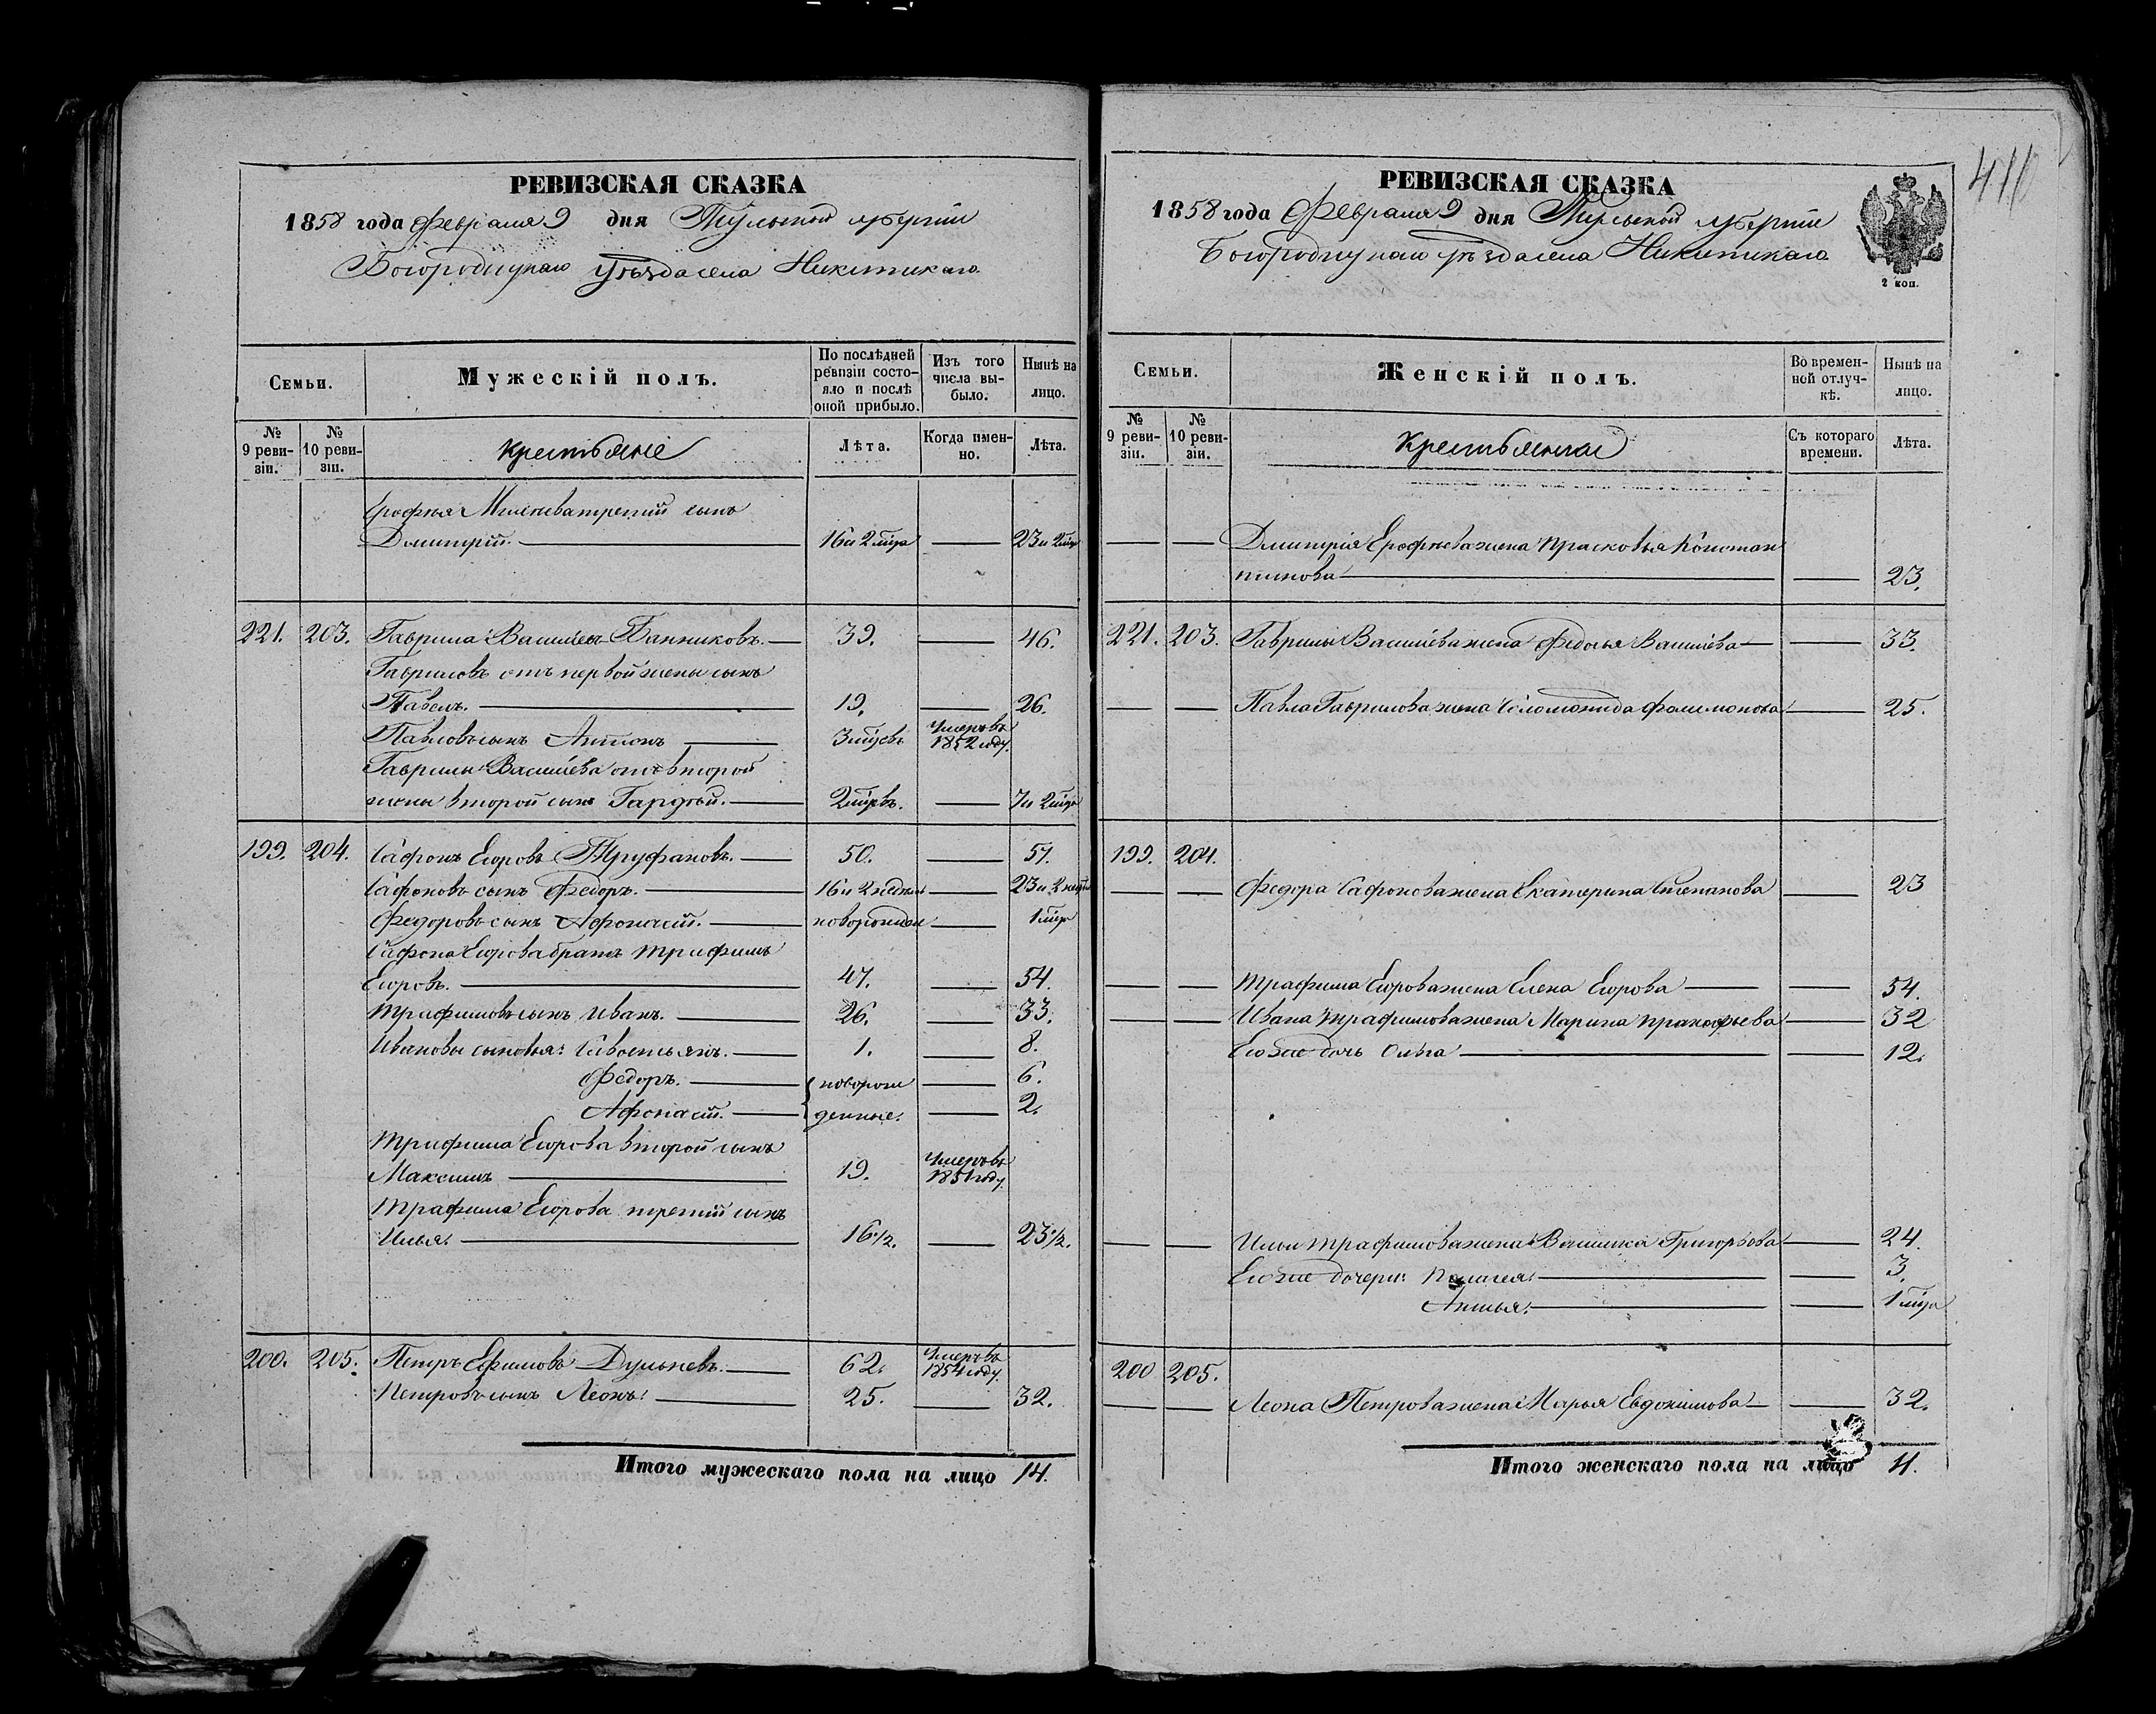 РЕВИЗСКАЯ СКАЗКА
1858 года Февраля 9 дня Тульской губернiи
Богородицкаго уѣзда села Никитскаго
Семьи.
Мужескiй полъ.
По послѣдней ревизiи состояло и послѣ оной прибыло.
Изъ того числа выбыло.
Нынѣ на лицо.
№ 9 ревизiи.
№ 10 ревизiи.
Крестьяне
Лѣта.
Когда именно.
Лѣта.
Ерофѣя третiй сынъ
Дмитрiй. 16 и 2 мѣца 23 и 2 мѣца
221. 203. Гаврила Васильевъ Банниковъ. 39. 46.
Гавриловъ отъ первой жены сынъ
Павелъ. 19. 26.
Павловъ сынъ Антонъ 3 мѣцевъ Умеръ въ 1852 году.
Гаврилы Васильева отъ второй
жены второй сынъ Гордѣй. 2 мѣцевъ. 7 и 2 мѣца
199. 204. Сафонъ Егоровъ Труфановъ. 50. 57.
Сафоновъ сынъ Федоръ. 16 и 2 недѣли 23 и 2 недѣли
Федоровъ сынъ Афонасiй. новорожден 1 мѣца
Сафона Егорова братъ Трифимъ
Егоровъ. 47. 54.
Трифимовъ сынъ Иванъ. 26. 33.
Ивановы сыновья: Савостьянъ. 1. 8.
Федоръ. новорож 6.
Афонасiй. денные. 2.
Трифима Егорова второй сынъ
Максимъ 19. Умеръ въ 1851 году.
Трафима Егорова третiй сынъ
Илья. 16 1/2. 23 1/2.
200. 205. Петръ Ефимовъ Дульневъ. 62. Умеръ въ 1854 году.
Петровъ сынъ Леонъ. 25. 32.
Итого мужескаго пола на лицо 14.
410
РЕВИЗСКАЯ СКАЗКА
1858 года Февраля 9 дня Тульской губернiи
Богородицкаго уѣзда села Никитскаго
2 коп.
Семьи.
Женскiй полъ.
Во временной отлучкѣ.
Нынѣ на лицо.
№ 9 ревизiи.
№ 10 ревизiи.
Крестьянки
Съ котораго времени.
Лѣта.
Дмитрiя Ерофѣева жена Прасковья Констан
тинова 23.
221. 203. Гаврилы Васильева жена Федосья Васильева 33.
Павла Гаврилова жена Соломонида Филимонова 25.
199. 204.
Федора Сафонова жена Екатерина Степанова 23
Трафима Егорова жена Елена Егорова 54.
Ивана Трафимова жена Марина Пракофьева 32
Его же дочь Ольга 12.
Ильи Трафимова жена Василиса Григорьева 24.
Его же дочери: Пелагея. 3.
Анисья. 1 мѣца
200 205.
Леона Петрова жена Марья Евдокимова 32.
Итого женскаго пола на лицо 11.